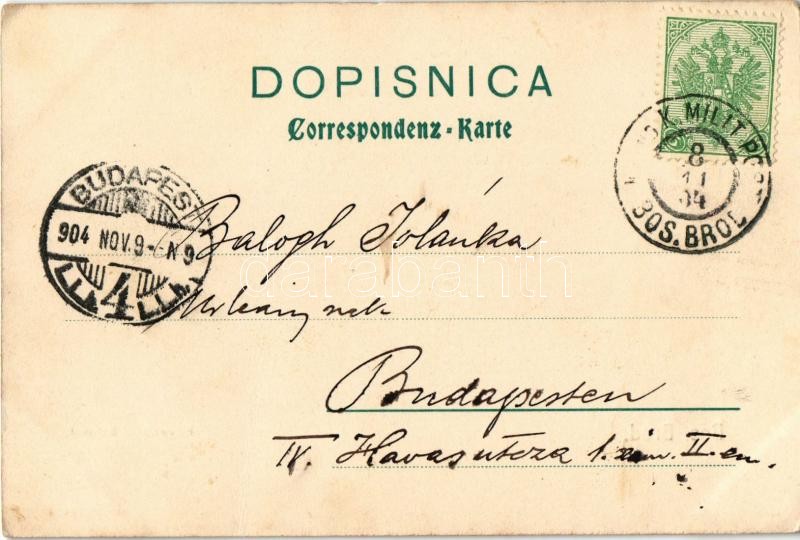 DOPISNICA
Correspondenz-Karte
K.K. MILIT. POST
8
11
04
BOS. BROD
BUDAPEST
904 NOV. 9
4
Balogh Jolánka
Urleány nak
Budapesten
IV. Havas utcza 1. szám. II. em.
darabanth